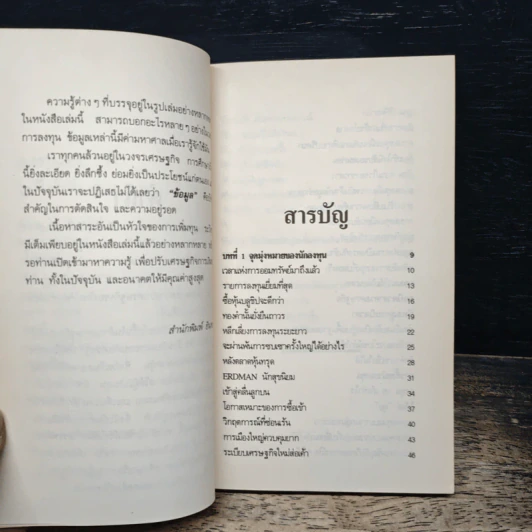 ความรู้ต่าง ๆ ที่บรรจุอยู่ในรูปเล่มอย่างหลาก
ในหนังสือเล่มนี้ สามารถบอกอะไรหลาย ๆ อย่าง
การลงทุน ข้อมูลเหล่านี้มีค่ามหาศาลเมื่อเรารู้จัก
เราทุกคนล้วนอยู่ในวงจรเศรษฐกิจ การศึกษา
นี้ยิ่งละเอียด ยิ่งลึกซึ้ง ย่อมยิ่งเป็นประโยชน์แก่
ในปัจจุบันเราจะปฏิเสธไม่ได้เลยว่า "ข้อมูล"
สำคัญในการตัดสินใจ และความอยู่รอด
เนื้อหาสาระอันเป็นหัวใจของการเพิ่มทุน
มีเต็มเพียบอยู่ในหนังสือเล่มนี้แล้วอย่างหลากหลาย
รอท่านเปิดเข้ามาหาความรู้ เพื่อปรับเศรษฐกิจการ
ท่าน ทั้งในปัจจุบัน และอนาคตให้มีคุณค่าสูงสุด
สำนักพิมพ์
สารบัญ
บทที่ 1 จุดมุ่งหมายของนักลงทุน 9
เวลาแห่งการออมทรัพย์มาถึงแล้ว 10
รายการลงทุนเยี่ยมที่สุด 13
ซื้อหุ้นบลูชิปจะดีกว่า 16
ทองคำนั้นยั่งยืนถาวร 19
หลีกเลี่ยงการลงทุนระยะยาว 22
จะผ่านพ้นการซบเซาครั้งใหญ่ได้อย่างไร 25
หลังตลาดหุ้นทรุด 28
ERDMAN นักสุขนิยม 31
เข้าสู่คลื่นลูกบน 34
โอกาสเหมาะของการซื้อเข้า 37
วิกฤตการณ์ที่ซ่อนเร้น 40
การเมืองใหญ่ควบคุมยาก 43
ระเบียบเศรษฐกิจใหม่ต่อเค้า 46